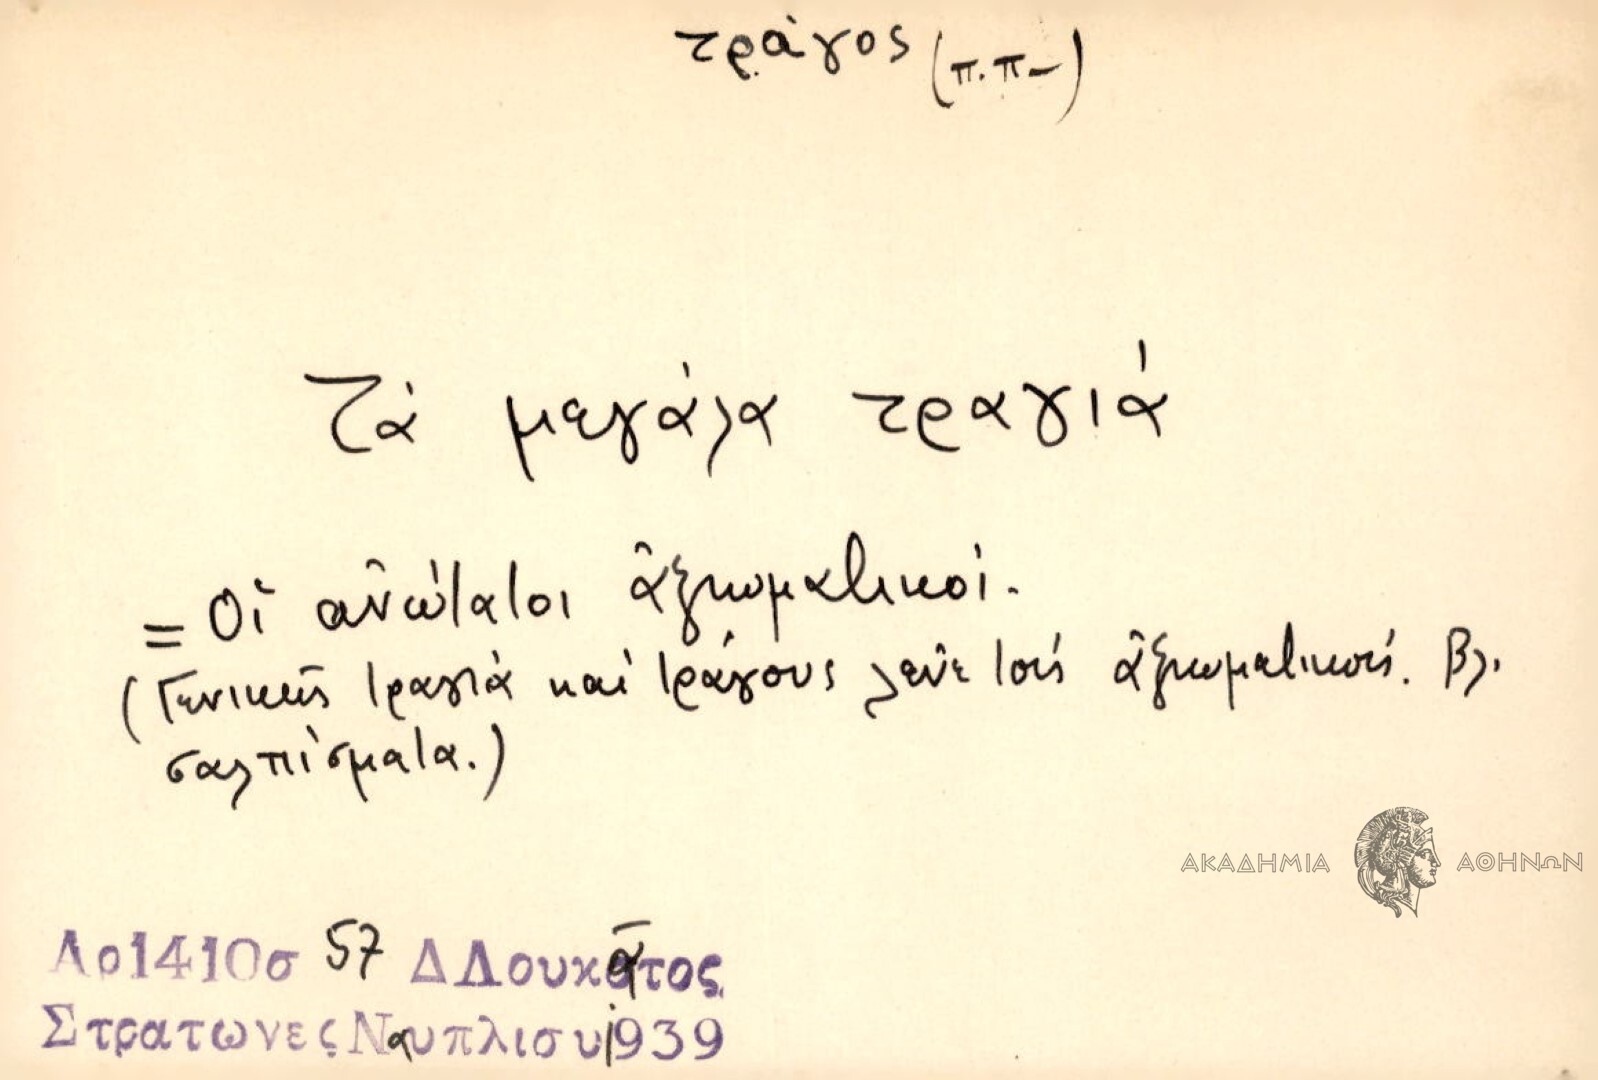 τράγος (π.π-)
Τά μεγάλα τραγιά
= Οἱ ἀνώτατοι ἀξιωματικοί.
(Γενικῶς τραγιά καί τράγους λένε τούς ἀξιωματικούς. Βλ.
σαλπίσματα.)
ΑΚΑΔΗΜΙΑ ΑΘΗΝΩΝ
Αρ1410σ 57 Δ Λουκᾶτος
Στρατωνες Ναυπλιου 1939